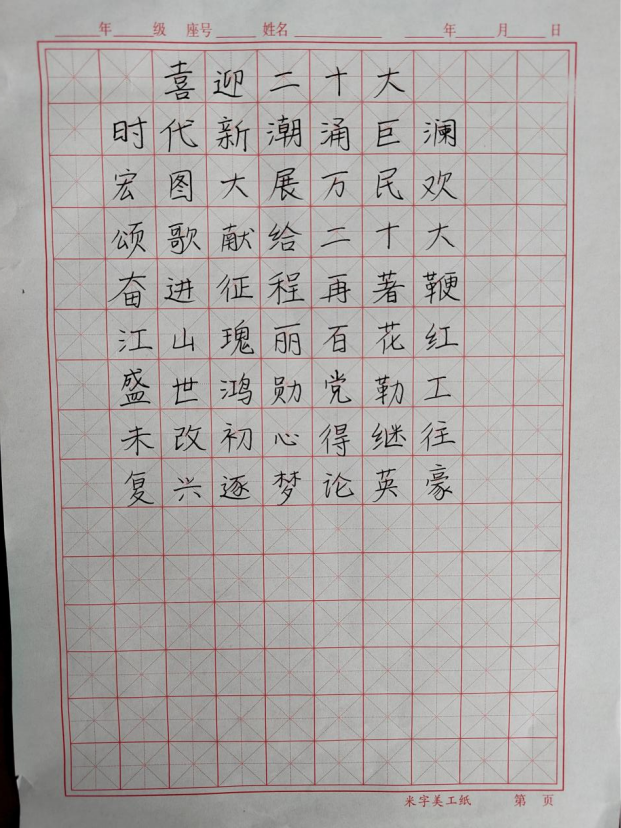 ____年____级 座号____ 姓名________ ____年____月____日
喜迎二十大
时代新潮涌巨澜
宏图大展万民欢
颂歌献给二十大
奋进征程再著鞭
江山瑰丽百花红
盛世鸿勋党勒工
未改初心得继往
复兴逐梦论英豪
米字美工纸 第 页